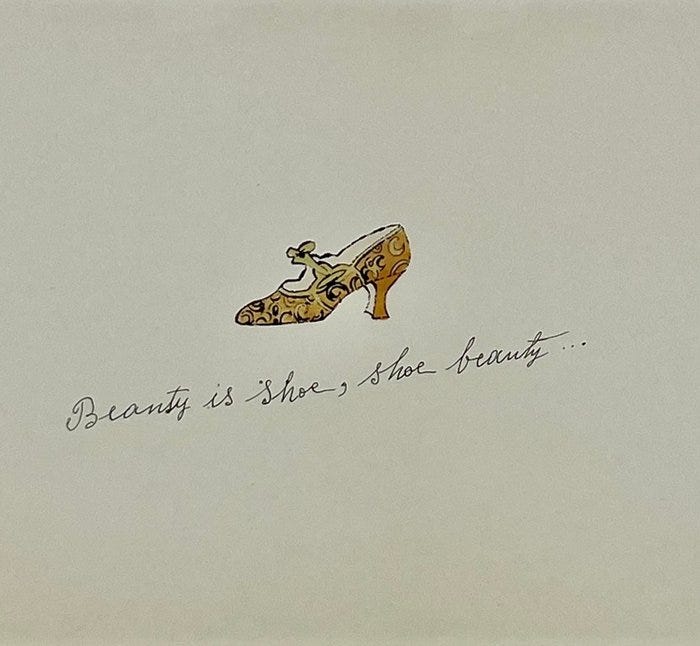 Beauty is shoe, shoe beauty...